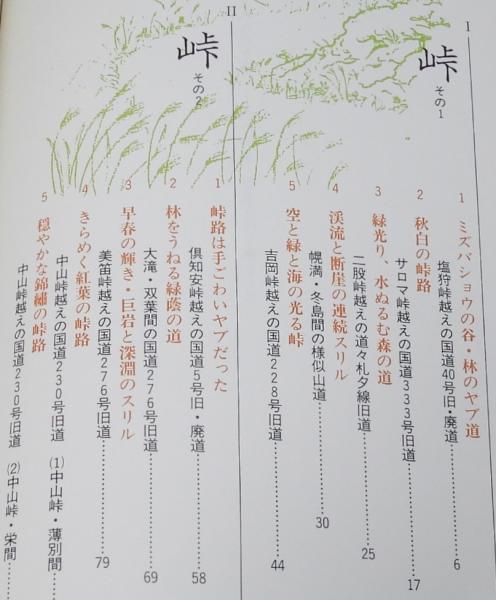 I
峠
その1
1 ミズバショウの谷・林のヤブ道
塩狩峠越えの国道40号旧・廃道……6
2 秋白の峠路
サロマ峠越えの国道333号旧道……17
3 緑光り、水ぬるむ森の道
二股峠越えの道々札夕線旧道……25
4 渓流と断崖の連続スリル
幌満・冬島間の様似山道……30
5 空と緑と海の光る峠
吉岡峠越えの国道228号旧道……44
II
峠
その2
1 峠路は手ごわいヤブだった
倶知安峠越えの国道5号旧・廃道……58
2 林をうねる緑蔭の道
大滝・双葉間の国道276号旧道……69
3 早春の輝き・巨岩と深淵のスリル
美笛峠越えの国道276号旧道……79
4 きらめく紅葉の峠路
中山峠越えの国道230号旧道 (1)中山峠・薄別間……
5 穏やかな錦繡の峠路
中山峠越えの国道230号旧道 (2)中山峠・栄間……